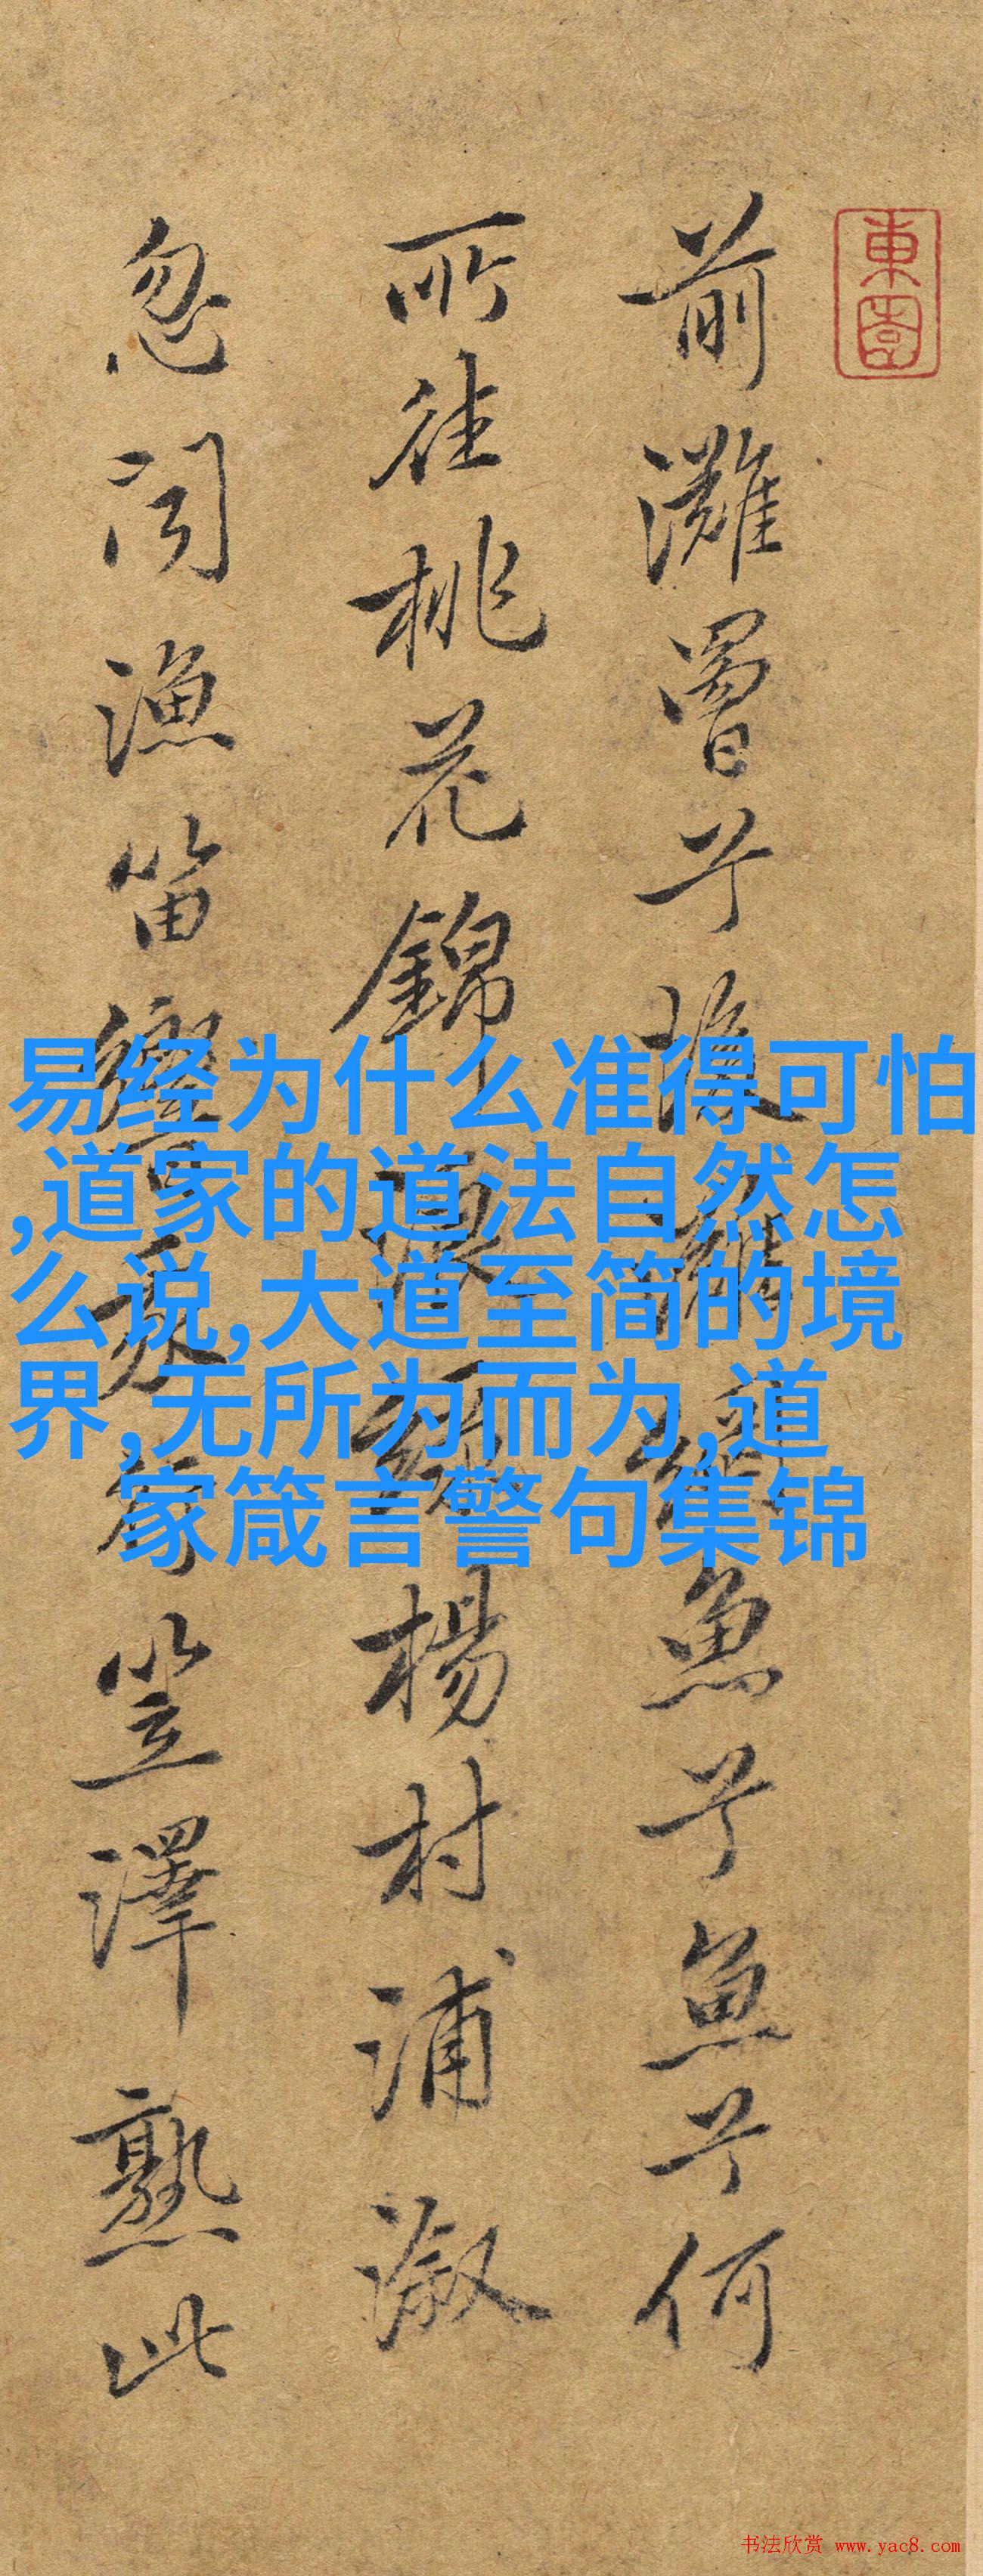 東園
前灘罾兮後灘網魚兮魚兮何
所往桃花錦浪綠楊村浦漵
忽聞漁笛響家笠澤熟此
易经为什么准得可怕
,道家的道法自然怎
么说,大道至简的境
界,无所为而为,道
家箴言警句集锦
书法欣赏 www.yac8.com